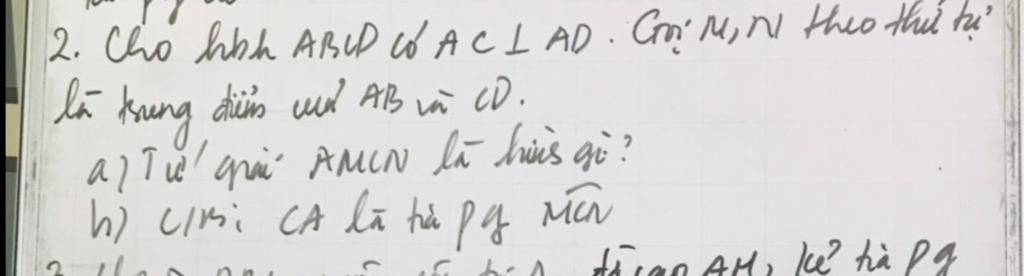 2. Cho hbh ABCD có AC ⊥ AD. Gọi M, N theo thứ tự
là trung điểm của AB và CD.
a) Tứ giác AMCN là hình gì?
b) C/m: CA là tia pg MCN
AM, kẻ tia pg